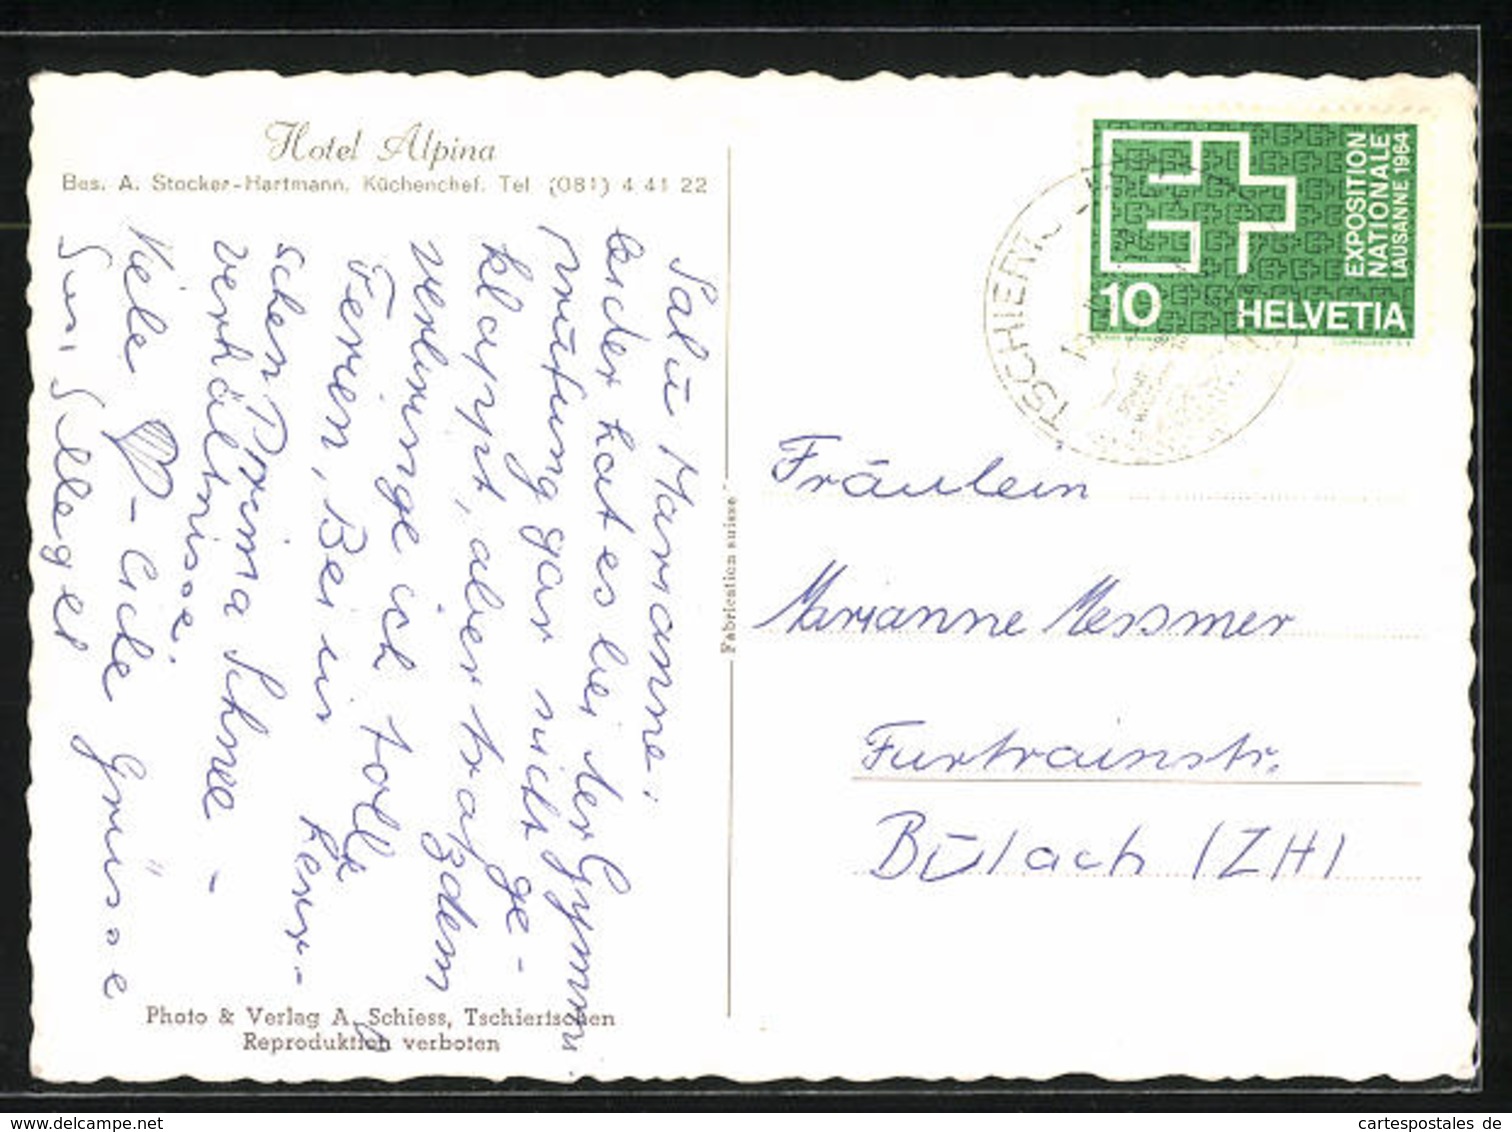 Hotel Alpina
Bes. A. Stocker-Hartmann, Küchenchef. Tel (081) 4 41 22
Salü Marianne!
Leider hat es bei der Gymnu
prüfung gar nicht ge-
klappt, aber trotzdem
verbringe ich tolle
Ferien, Bei
schen Prima Schnee-
verhältnisse.
Viele -liche Grüsse
Susi
Photo & Verlag A. Schiess, Tschiertschen
Reproduktion verboten
Fabrication suisse
TSCHIERTSCHEN
EXPOSITION
NATIONALE
LAUSANNE 1964
10
HELVETIA
Fräulein
Marianne Messmer
Furtrainstr.
Bülach (ZH)
cartespostales de
www.delcampe.net